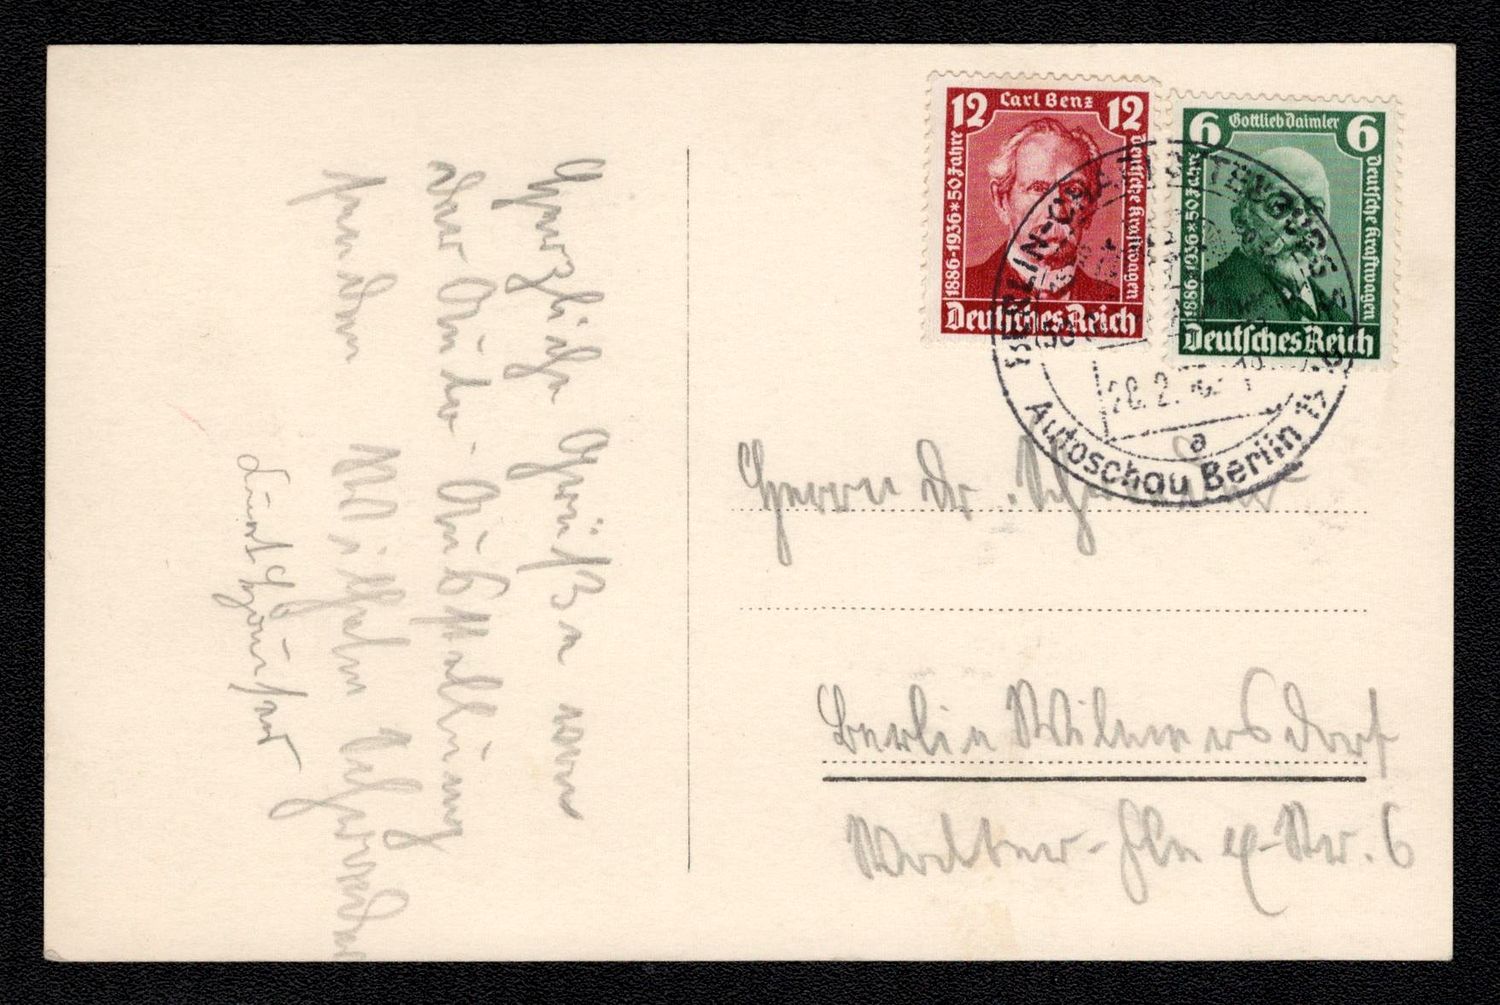 12 Carl Benz 12
1886-1936*50 Jahre
Deutsche Kraftwagen
Deutsches Reich
6 Gottlieb Daimler 6
1886-1936*50 Jahre
Deutsche Kraftwagen
Deutsches Reich
BERLIN-CHARLOTTENBURG
28.2.
a
Autoschau Berlin
Herzliche Grüße von
der Auto-Ausstellung
senden Wilhelm
Kurt
Herrn Dr.
Berlin Wilmersdorf
Str. 6